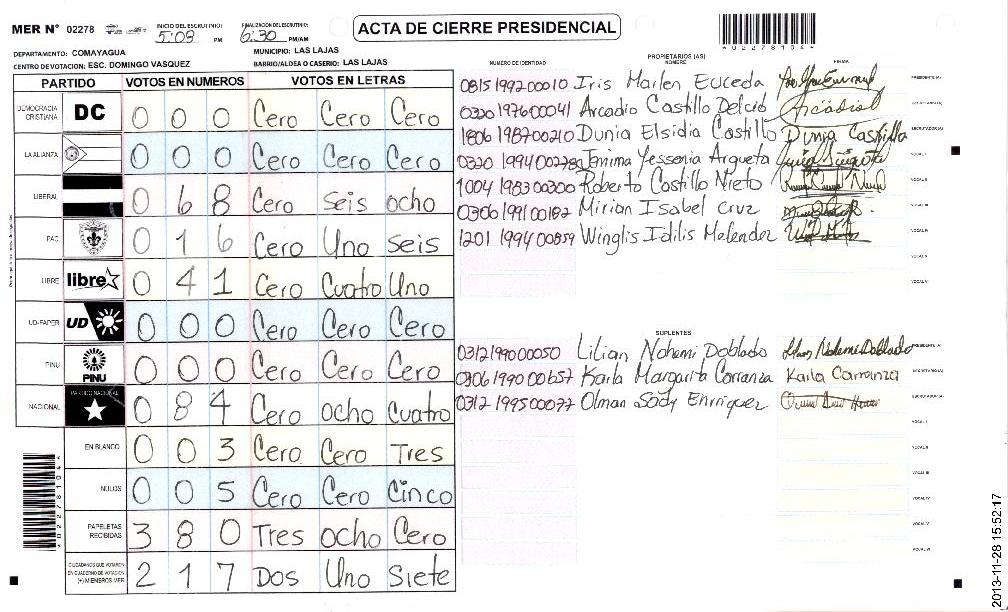 MER N° 02278 INICIO DEL ESCRUTINIO: 5:08 PM FINALIZACIÓN DEL ESCRUTINIO: 6:30 PM/AM ACTA DE CIERRE PRESIDENCIAL
*02278104*
DEPARTAMENTO: COMAYAGUA MUNICIPIO: LAS LAJAS
CENTRO DE VOTACION: ESC. DOMINGO VASQUEZ BARRIO/ALDEA O CASERIO: LAS LAJAS
PARTIDO VOTOS EN NUMEROS VOTOS EN LETRAS
DEMOCRACIA CRISTIANA DC 0 0 0 Cero Cero Cero
LA ALIANZA 0 0 0 Cero Cero Cero
LIBERAL 0 6 8 Cero Seis ocho
PAC 0 1 6 Cero Uno Seis
LIBRE libre 0 4 1 Cero Cuatro Uno
UD-FAPER UD 0 0 0 Cero Cero Cero
PINU PINU 0 0 0 Cero Cero Cero
NACIONAL PARTIDO NACIONAL 0 8 4 Cero ocho Cuatro
EN BLANCO 0 0 3 Cero Cero Tres
NULOS 0 0 5 Cero Cero Cinco
PAPELETAS RECIBIDAS 3 8 0 Tres ocho Cero
CIUDADANOS QUE VOTARON EN CUADERNO DE VOTACION (+) MIEMBROS MER 2 1 7 Dos Uno Siete
*02278104*
PROPIETARIOS (AS)
NUMERO DE IDENTIDAD NOMBRE FIRMA
0815199200010 Iris Marlen Euceda PRESIDENTE(A)
0320197600041 Arcadio Castillo Delcid SECRETARIO(A)
1806198700210 Dunia Elsidia Castillo Dunia Castillo ESCRUTADOR(A)
Jenima Yessenia Argueta VOCAL I
1004198300300 Roberto Castillo Nieto VOCAL II
0306199100182 Mirian Isabel Cruz VOCAL III
1201199400859 Winglis Idilis Melendez VOCAL IV
VOCAL V
VOCAL VI
SUPLENTES
0312199000050 Lilian Nohemi Doblado Nohemi Doblado PRESIDENTE(A)
0306199000657 Karla Margarita Carranza Karla Carranza SECRETARIO(A)
0312199500077 Olman Sady Enrriquez ESCRUTADOR(A)
VOCAL I
VOCAL II
VOCAL III
VOCAL IV
VOCAL V
VOCAL VI
2013-11-28 15:52:17